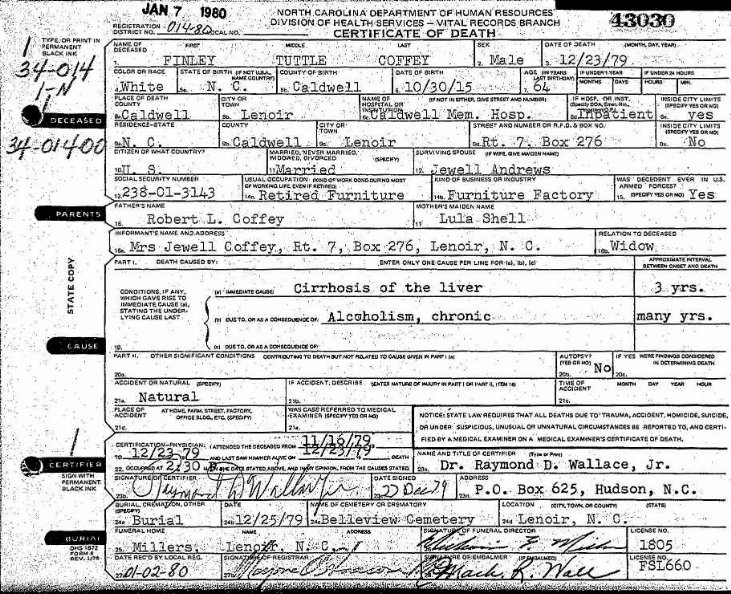 JAN 7 1980
NORTH CAROLINA DEPARTMENT OF HUMAN RESOURCES
DIVISION OF HEALTH SERVICES - VITAL RECORDS BRANCH
CERTIFICATE OF DEATH
43030
REGISTRATION DISTRICT NO. 014-80 LOCAL NO.
TYPE, OR PRINT IN PERMANENT BLACK INK
1
34-014
1-N
DECEASED
34-01400
NAME OF DECEASED FIRST MIDDLE LAST SEX DATE OF DEATH (MONTH, DAY, YEAR)
1. FINLEY TUTTLE COFFEY 2. Male 3. 12/23/79
COLOR OR RACE STATE OF BIRTH (IF NOT U.S.A. NAME COUNTRY) COUNTY OF BIRTH DATE OF BIRTH AGE (IN YEARS LAST BIRTHDAY) IF UNDER 1 YEAR IF UNDER 24 HOURS
MONTHS DAYS HOURS MIN.
4. White N. C. Caldwell 10/30/15 64
PLACE OF DEATH COUNTY CITY OR TOWN NAME OF HOSPITAL OR INSTITUTION (IF NOT IN EITHER, GIVE STREET AND NUMBER) IF HOSP. OR INST. INSIDE CITY LIMITS (SPECIFY YES OR NO)
Caldwell Lenoir Caldwell Mem. Hosp. Inpatient yes
RESIDENCE-STATE COUNTY CITY OR TOWN STREET AND NUMBER OR R.F.D. & BOX NO. INSIDE CITY LIMITS (SPECIFY YES OR NO)
N. C. Caldwell Lenoir Rt. 7, Box 276 No
CITIZEN OF WHAT COUNTRY? MARRIED, NEVER MARRIED, WIDOWED, DIVORCED (SPECIFY) SURVIVING SPOUSE (IF WIFE, GIVE MAIDEN NAME)
10. U. S. 11. Married 12. Jewell Andrews
SOCIAL SECURITY NUMBER USUAL OCCUPATION (KIND OF WORK DONE DURING MOST OF WORKING LIFE, EVEN IF RETIRED) KIND OF BUSINESS OR INDUSTRY WAS DECEDENT EVER IN U.S. ARMED FORCES? (SPECIFY YES OR NO)
238-01-3143 Retired Furniture Furniture Factory Yes
PARENTS
FATHER'S NAME MOTHER'S MAIDEN NAME
16. Robert L. Coffey 17. Lula Shell
INFORMANT'S NAME AND ADDRESS RELATION TO DECEASED
18a. Mrs Jewell Coffey, Rt. 7, Box 276, Lenoir, N. C. 18b. Widow
STATE COPY
PART I. DEATH CAUSED BY: ENTER ONLY ONE CAUSE PER LINE FOR (a), (b), (c) APPROXIMATE INTERVAL BETWEEN ONSET AND DEATH
CONDITIONS, IF ANY, WHICH GAVE RISE TO IMMEDIATE CAUSE (a), STATING THE UNDERLYING CAUSE LAST
(a) IMMEDIATE CAUSE: Cirrhosis of the liver 3 yrs.
(b) DUE TO, OR AS A CONSEQUENCE OF: Alcoholism, chronic many yrs.
CAUSE
19. (c) DUE TO, OR AS A CONSEQUENCE OF:
PART II. OTHER SIGNIFICANT CONDITIONS CONTRIBUTING TO DEATH BUT NOT RELATED TO CAUSE GIVEN IN PART I (a) AUTOPSY (YES OR NO) IF YES WERE FINDINGS CONSIDERED IN DETERMINING DEATH
20a. No
ACCIDENT OR NATURAL (SPECIFY) IF ACCIDENT, DESCRIBE (ENTER NATURE OF INJURY IN PART I OR PART II, ITEM 19) TIME OF ACCIDENT MONTH DAY YEAR HOUR
21a. Natural 21b. 21c.
PLACE OF ACCIDENT AT HOME, FARM, STREET, FACTORY, OFFICE BLDG., ETC. (SPECIFY) WAS CASE REFERRED TO MEDICAL EXAMINER (SPECIFY YES OR NO)
NOTICE: STATE LAW REQUIRES THAT ALL DEATHS DUE TO TRAUMA, ACCIDENT, HOMICIDE, SUICIDE, OR UNDER SUSPICIOUS, UNUSUAL OR UNNATURAL CIRCUMSTANCES BE REPORTED TO, AND CERTIFIED BY A MEDICAL EXAMINER ON A MEDICAL EXAMINER'S CERTIFICATE OF DEATH.
1
CERTIFIER
SIGN WITH PERMANENT BLACK INK
CERTIFICATION-PHYSICIAN: I ATTENDED THE DECEASED FROM 11/16/79
TO 12/23/79 AND LAST SAW HIM/HER ALIVE ON 12/23/79 DEATH
22. OCCURRED AT 2:30 ON THE DATE STATED ABOVE, AND IN MY OPINION, FROM THE CAUSES STATED
NAME AND TITLE OF CERTIFIER (Type or Print)
23a. Dr. Raymond D. Wallace, Jr.
SIGNATURE OF CERTIFIER DATE SIGNED ADDRESS
Raymond D Wallace Jr 27 Dec 79 P.O. Box 625, Hudson, N.C.
BURIAL, CREMATION, OTHER (SPECIFY) DATE NAME OF CEMETERY OR CREMATORY LOCATION (CITY, TOWN, OR COUNTY) (STATE)
24a. Burial 24b. 12/25/79 24c. Belleview Cemetery 24d. Lenoir, N. C.
BURIAL
DHS 1872
FORM 8
REV. 1/78
FUNERAL HOME NAME ADDRESS SIGNATURE OF FUNERAL DIRECTOR LICENSE NO.
25. Millers Lenoir, N. C. 1805
DATE REC'D BY LOCAL REG. SIGNATURE OF REGISTRAR SIGNATURE OF EMBALMER (IF EMBALMED) LICENSE NO.
01-02-80 Mack R. Wall FSL660